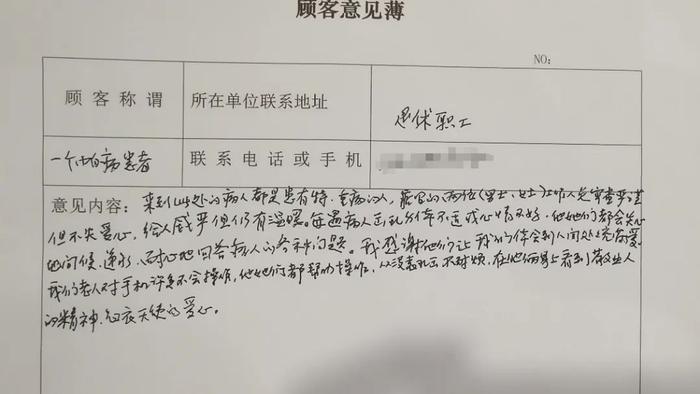 顾客意见薄
NO:
顾客称谓 所在单位联系地址 退休职工
一个怕病患者 联系电话或手机
意见内容: 来到此处的病人都是患有特、重病的人, 两位(男士、女士)工作人员审查严谨
但不失爱心, 给人威严但仍有温暖。每遇病人 心情不好, 他她们都会关心
地问候、递水、耐心地回答病人的各种问题。我感谢他们让我们体会到人间处处充满爱。
我们老人对手机许多不会操作, 他她们都帮助操作, 从没表现出不耐烦, 在他们身上看到救死人
的精神, 白衣天使的爱心。